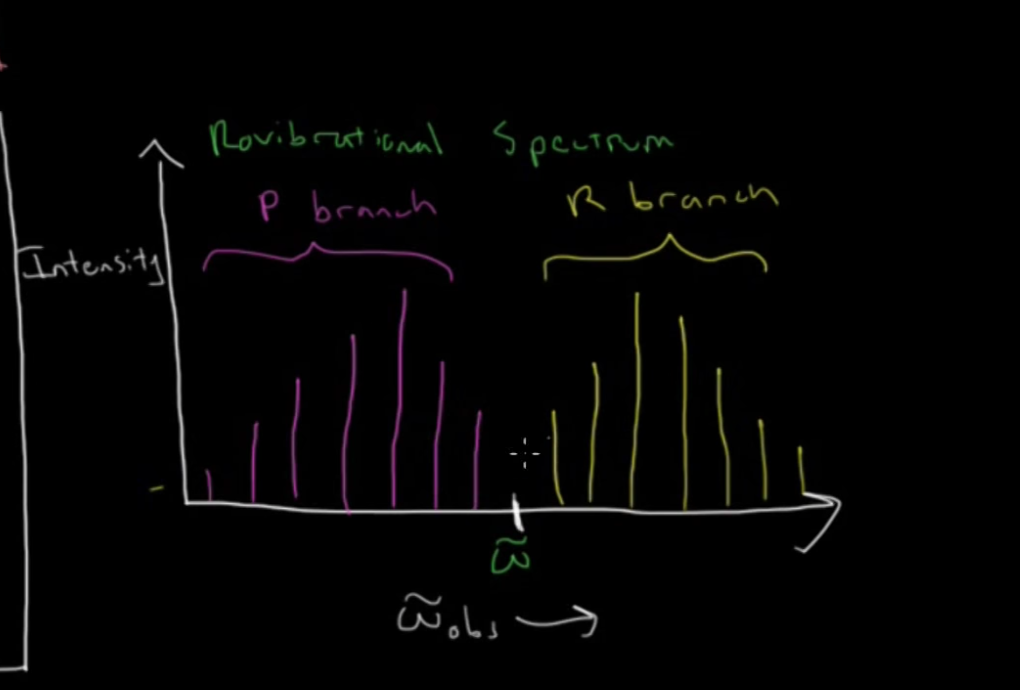 Rovibrational Spectrum
P branch
R branch
Intensity
ω̃
ω̃obs →